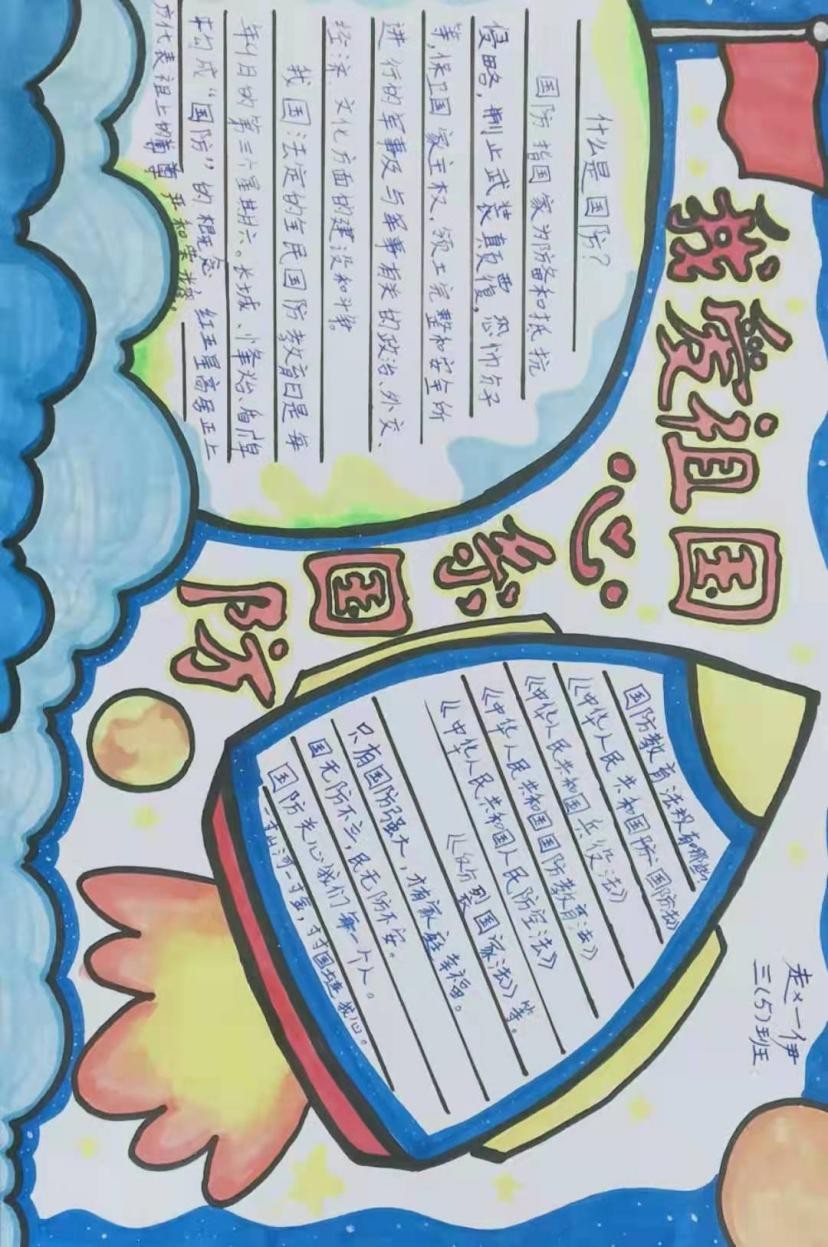 我爱祖国
心系国防
什么是国防?
国防指国家为防备和抵抗
侵略,制止武装颠覆,恐怖分子
等,保卫国家主权,领土完整和安全所
进行的军事及与军事有关的政治、外交、
经济、文化方面的建设和斗争。
我国法定的全民国防教育日是每
年9月的第三个星期六。长城、烽烟、盾牌
构成“国防”的概念,红五星高居正上
方代表祖上的尊严和荣耀。
国防教育法规有哪些?
《中华人民共和国防》国防法》
《中华人民共和国兵役法》
《中华人民共和国国防教育法》
《中华人民共和国人民防空法》
《分裂国家法》等。
只有国防强大,才有家庭幸福。
国无防不立,民无防不安。
国防关心我们每一个人。
一寸山河一寸金,寸寸国土连我心。
赵一伊
三(5)班